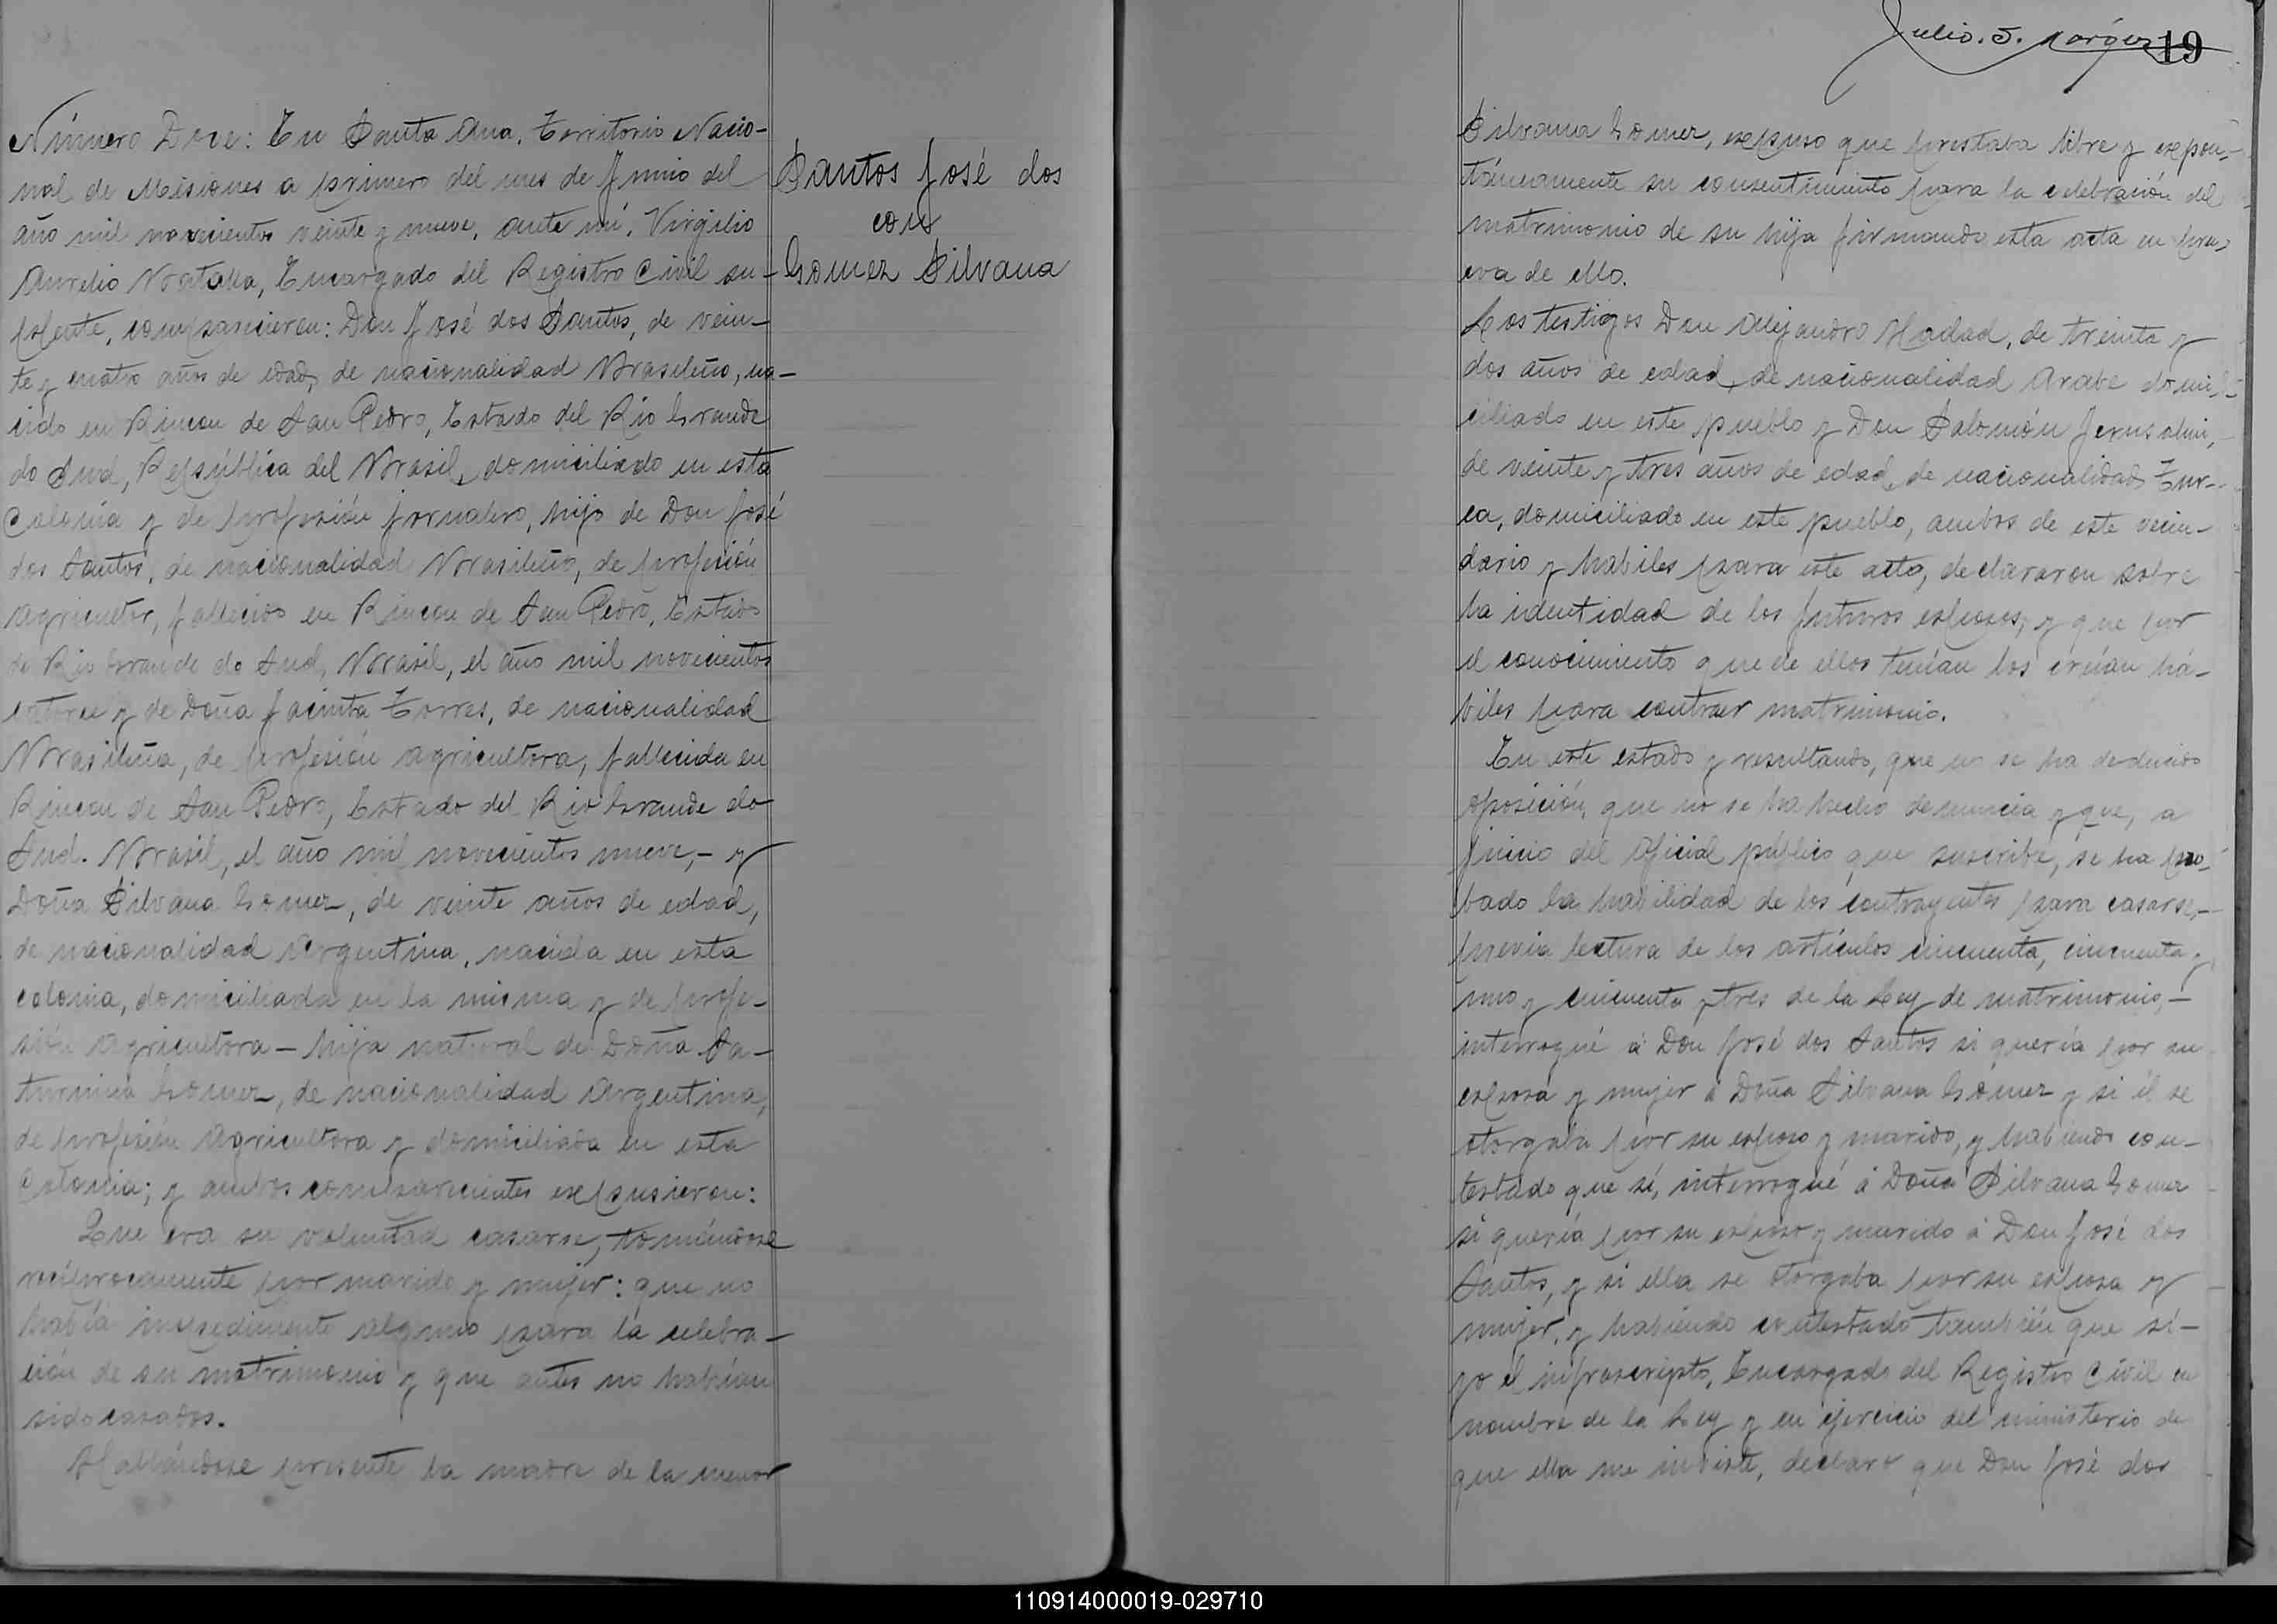 Número Doce: En Santa Ana, Territorio Nacio-
nal de Misiones a primero del mes de Junio del
año mil novecientos veinte y nueve, ante mí, Virgilio
Aurelio, Encargado del Registro Civil su-
plente, comparecieron: Don José dos Santos, de vein-
te y cuatro años de edad, de nacionalidad Brasileño, na-
cido en Rincon de San Pedro, Estado del Rio Grande
do Sud, República del Brasil, domiciliado en esta
Colonia y de profesión jornalero, hijo de Don José
dos Santos, de nacionalidad Brasileño, de profesión
Agricultor, fallecido en Rincon de San Pedro, Estado
de Rio Grande do Sud, Brasil, el año mil novecientos
catorce y de Doña Jacinta Torres, de nacionalidad
Brasileña, de profesión Agricultora, fallecida en
Rincon de San Pedro, Estado del Rio Grande do
Sud. Brasil, el año mil novecientos nueve,- y
Doña Silvana Gomez, de veinte años de edad,
de nacionalidad Argentina, nacida en esta
colonia, domiciliada en la misma y de profe-
sión Agricultora - hija natural de Doña Sa-
turnina Gomez, de nacionalidad Argentina,
de profesión Agricultora y domiciliada en esta
Colonia; y ambos comparecientes expusieron:
Que era su voluntad casarse, tomándose
recíprocamente por marido y mujer: que no
había impedimento alguno para la celebra-
ción de su matrimonio y que antes no habían
sido casados.
Hallándose presente la madre de la menor
Santos José dos
con
Gomez Silvana
Julio. S.
19
Silvana Gomez, expuso que prestaba libre y expon-
táneamente su consentimiento para la celebración del
matrimonio de su hija firmando esta acta en prue-
eva de ello.
Los testigos Don Alejandro Hadad, de treinta y
dos años de edad, de nacionalidad Arabe domi-
ciliado en este pueblo y Don Salomón Jerusalmi,
de veinte y tres años de edad, de nacionalidad Tur-
ca, domiciliado en este pueblo, ambos de este vecin-
dario y habiles para este acto, declararon sobre
la identidad de los futuros esposos, y que por
el conocimiento que de ellos tenían los creían há-
biles para contraer matrimonio.
En este estado y resultando, que no se ha deducido
oposición, que no se ha hecho denuncia y que, a
juicio del Oficial público que suscribe, se ha pro-
bado la habilidad de los contrayentes para casarse,-
previa lectura de los artículos cincuenta, cincuenta y
uno y cincuenta y tres de la Ley de matrimonio,-
interrogué á Don José dos Santos si quería por su
esposa y mujer á Doña Silvana Gómez y si él se
otorgaba por su esposo y marido, y habiendo con-
testado que sí, interrogué á Doña Silvana Gomez
si quería por su esposo y marido á Don José dos
Santos, y si ella se otorgaba por su esposa y
mujer, y habiendo contestado también que sí-
yo el infrascripto, Encargado del Registro Civil en
nombre de la Ley y en ejercicio del ministerio de
que ella me inviste, declaro que Don José dos
110914000019-029710